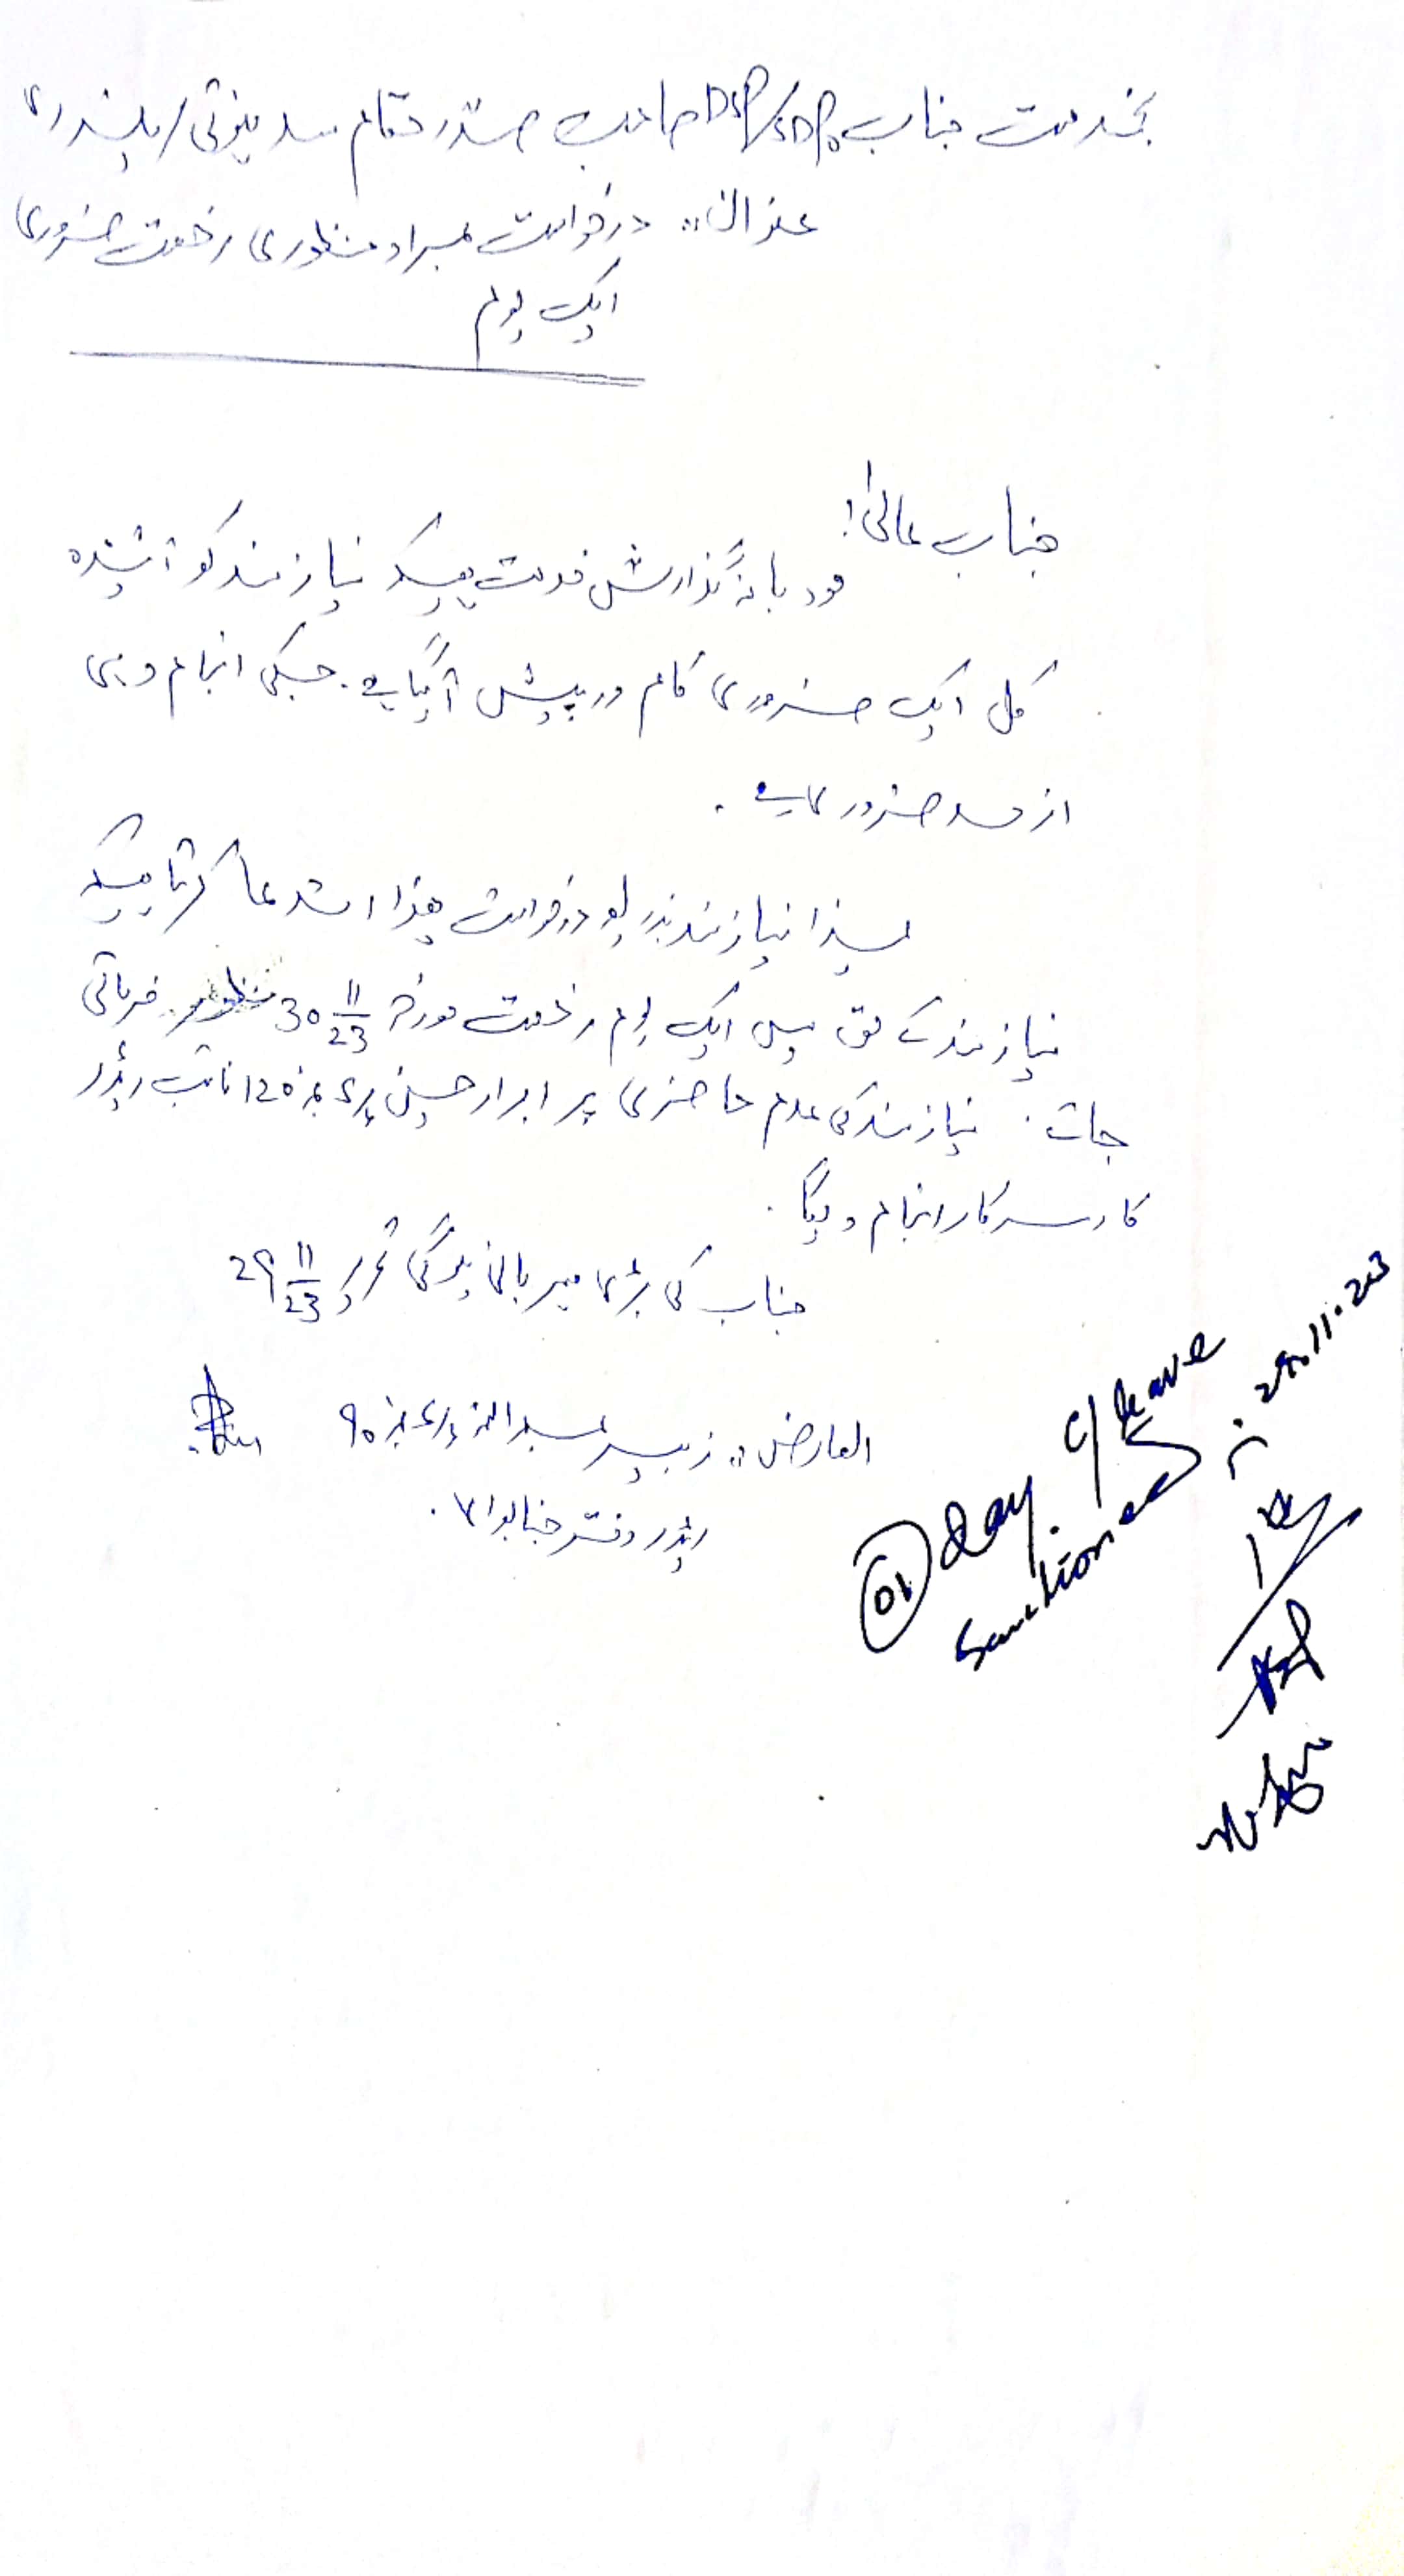 بخدمت جناب DSP/SDPO صاحب صدر مقام سدہنوتی/پلندری
عنوان:۔ درخواست بمراد منظوری رخصت ضروری
ایک یوم
جناب عالیٰ!
مودبانہ گذارش خدمت ہیکہ نیازمند کو آئیندہ
کل ایک ضروری کام درپیش آگیا ہے۔ جسکی انجام دہی
ازحد ضروری ہے۔
لہذا نیازمند بذریعہ درخواست ھذا استدعا کرتا ہیکہ
نیازمند کے حق میں ایک یوم رخصت مورخہ 30 11/23 منظور فرمائی
جائے۔ نیازمند کی عدم حاضری پر ابرار حسین نمبر 120 نائب ریڈر
کار سرکار انجام دیگا۔
جناب کی بڑی مہربانی ہوگی تحریر 29 11/23
العارض:۔ زبیر نمبر 90
ریڈر دفتر جنابوالا۔
01 Day C/leave
Sanctioned
29.11.2023